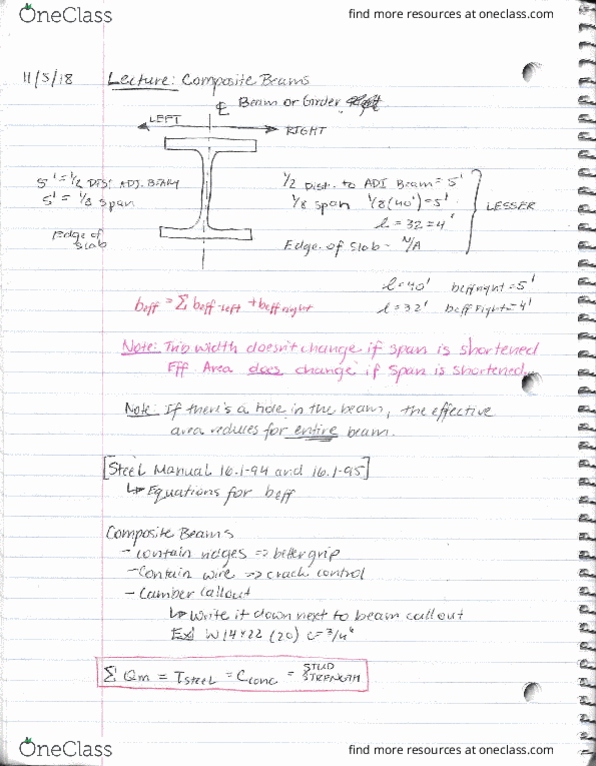 OneClass
find more resources at oneclass.com
11/5/18 Lecture: Composite Beams
℄ Beam or Girder
LEFT
RIGHT
5' = 1/2 DIST ADJ. BEAM
5' = 1/8 span
Edge of Slab
1/2 Dist. to ADJ Beam = 5'
1/8 span 1/8(40') = 5'
l = 32 = 4'
Edge of Slab - N/A
LESSER
l = 40' beff right = 5'
l = 32' beff right = 4'
beff = Σ beff-left + beff right
Note: Trib width doesn't change if span is shortened
Eff. Area does change if span is shortened.
Note: If there's a hole in the beam, the effective
area reduces for entire beam.
[Steel Manual 16.1-94 and 16.1-95]
↳ Equations for beff
Composite Beams
- contain ridges => better grip
- Contain wire => crack control
- Camber callout
↳ Write it down next to beam callout
Ex) W14x22 (20) c=3/4"
Σ Qm = Tsteel = Cconc = STUD STRENGTH
OneClass
find more resources at oneclass.com